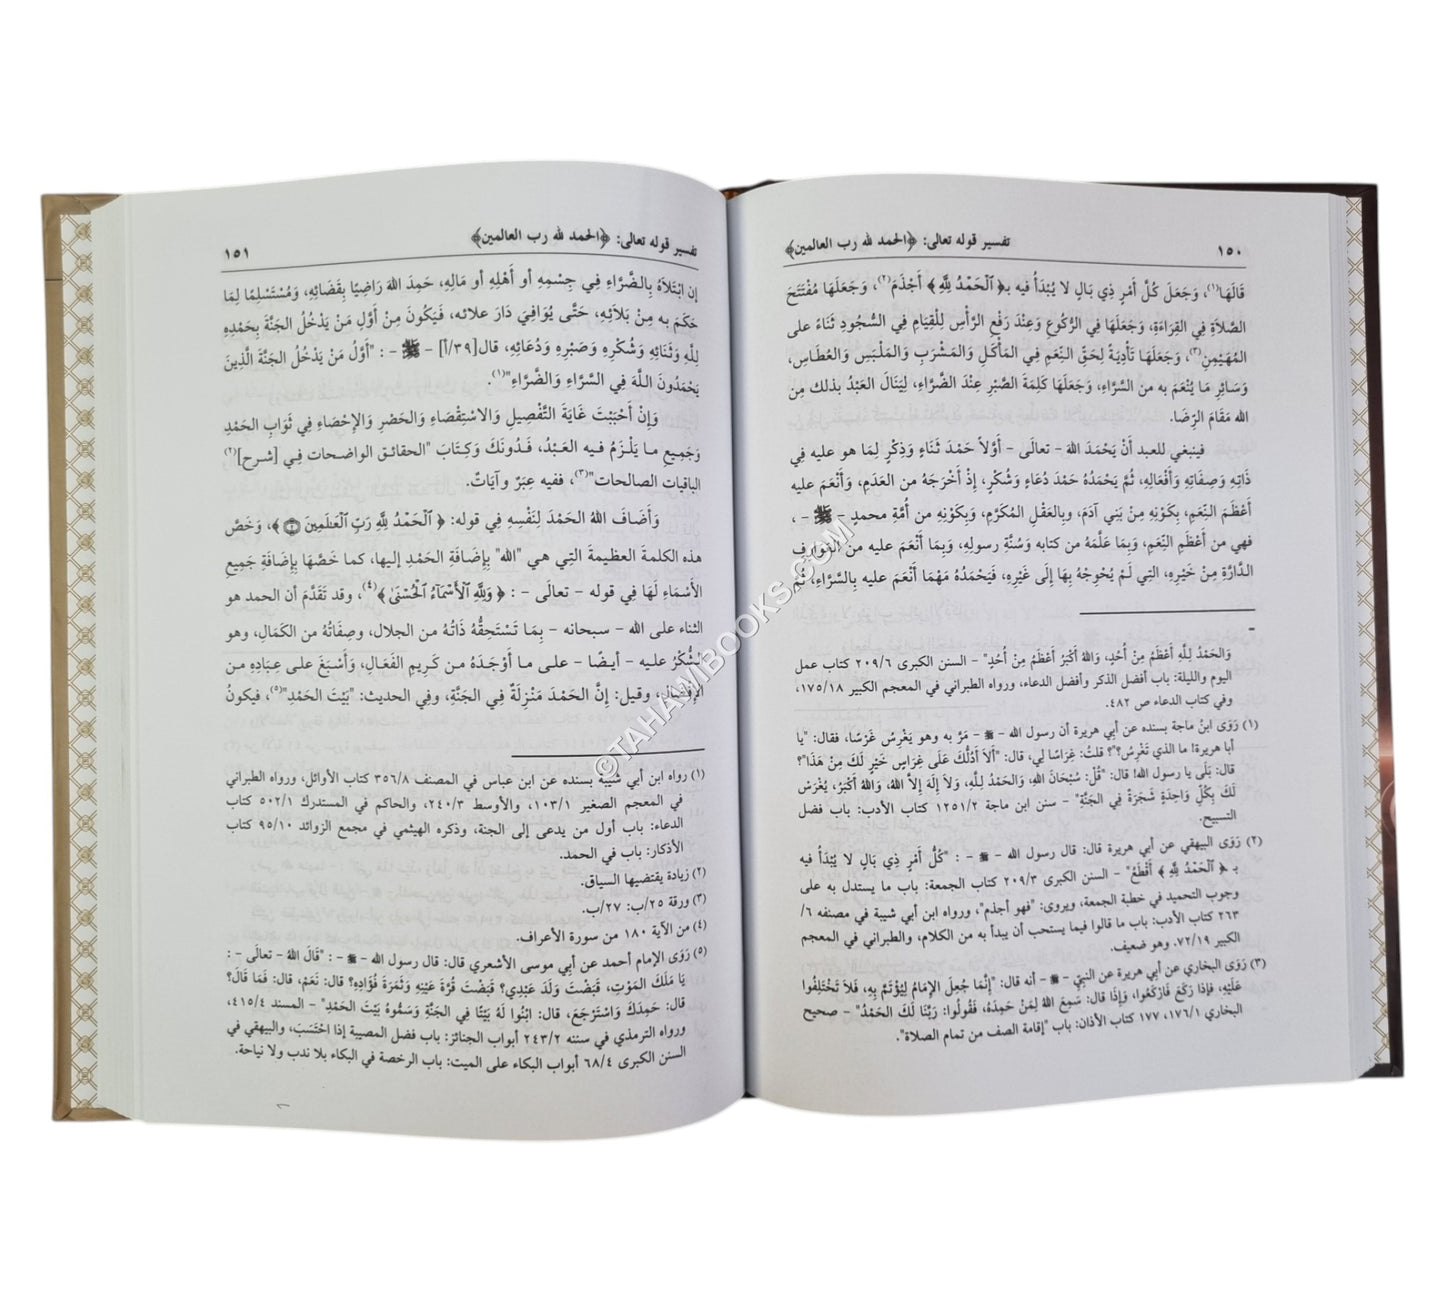 ١٥٠ تفسير قوله تعالى: ﴿الحمد لله رب العالمين﴾
قَالَهَا(١)، وَجَعَلَ كُلَّ أَمْرٍ ذِي بَالٍ لا يُبْدَأُ فيه بـ﴿ ٱلْحَمْدُ لِلَّهِ ﴾ أَجْذَمَ(٢)، وَجَعَلَهَا مُفْتَتَحَ
الصَّلاَةِ في القِرَاءَةِ، وَجَعَلَهَا فِي الرُّكُوعِ وَعِنْدَ رَفْعِ الرَّأْسِ لِلْقِيَامِ فِي السُّجُودِ ثَنَاءً على
المُهَيْمِنِ(٣)، وَجَعَلَهَا تَأْدِيَةً لِحَقِّ النِّعَمِ فِي المَأْكَلِ وَالمَشْرَبِ وَالمَلْبَسِ وَالعُطَاسِ،
وَسَائِرِ مَا يُنْعَمُ به من السَّرَّاءِ، وَجَعَلَهَا كَلِمَةَ الصَّبْرِ عِنْدَ الضَّرَّاءِ، لِيَنَالَ العَبْدُ بذلك مِن
الله مَقَامَ الرِّضَا.
فينبغي للعبد أَنْ يَحْمَدَ اللهَ – تعالَى – أَوَّلاً حَمْدَ ثَنَاءٍ وَذِكْرٍ لِمَا هو عليه فِي
ذَاتِهِ وَصِفَاتِهِ وَأَفْعَالِهِ، ثُمَّ يَحْمَدُهُ حَمْدَ دُعَاءٍ وَشُكْرٍ، إِذْ أَخْرَجَهُ من العَدَمِ، وَأَنْعَمَ عليه
أَعْظَمَ النِّعَمِ، بِكَوْنِهِ مِنْ بَنِي آدَمَ، وبالعَقْلِ المُكَرَّمِ، وَبِكَوْنِهِ من أُمَّةِ محمدٍ – ﷺ – ،
فهي من أَعْظَمِ النِّعَمِ، وَبِمَا عَلَّمَهُ من كتابه وَسُنَّةِ رسولِهِ، وَبِمَا أَنْعَمَ عليه من العَوَارِفِ
الدَّارَّةِ مِنْ خَيْرِهِ، التِي لَمْ يُحْوِجْهُ بِهَا إِلَى غَيْرِهِ، فَيَحْمَدُهُ مَهْمَا أَنْعَمَ عليه بِالسَّرَّاءِ، ثُمَّ
=
وَالحَمْدُ لِلَّهِ أَعْظَمُ مِنْ أُحُدٍ، وَاللهُ أَكْبَرُ أَعْظَمُ مِنْ أُحُدٍ" – السنن الكبرى ٢٠٩/٦ كتاب عمل
اليوم والليلة: باب أفضل الذكر وأفضل الدعاء، ورواه الطبراني في المعجم الكبير ١٧٥/١٨،
وفي كتاب الدعاء ص ٤٨٢.
(١) رَوَى ابنُ ماجة بسنده عن أبي هريرة أن رسول الله – ﷺ – مَرَّ به وهو يَغْرِسُ غَرْسًا، فقال: "يا
أبا هريرة! ما الذي تَغْرِسُ؟"؟ قلتُ: غِرَاسًا لِي، قال: "أَلاَ أَدُلُّكَ عَلَى غِرَاسٍ خَيْرٍ لَكَ مِنْ هَذَا"؟
قال: بَلَى يا رسول الله! قال: "قُلْ: سُبْحَانَ اللهِ، وَالحَمْدُ لِلَّهِ، وَلاَ إِلَهَ إِلاَّ اللهُ، وَاللهُ أَكْبَرُ، يُغْرَسْ
لَكَ بِكُلِّ وَاحِدَةٍ شَجَرَةٌ فِي الجَنَّةِ" – سنن ابن ماجة ١٢٥١/٢ كتاب الأدب: باب فضل
التسبيح.
(٢) رَوَى البيهقي عن أبي هريرة قال: قال رسول الله – ﷺ – : "كُلُّ أَمْرٍ ذِي بَالٍ لا يُبْدَأُ فيه
بـ ﴿ ٱلْحَمْدُ لِلَّهِ ﴾ أَقْطَعُ" – السنن الكبرى ٢٠٩/٣ كتاب الجمعة: باب ما يستدل به على
وجوب التحميد في خطبة الجمعة، ويروى: "فهو أجذم"، ورواه ابن أبي شيبة في مصنفه ٦/
٢٦٣ كتاب الأدب: باب ما قالوا فيما يستحب أن يبدأ به من الكلام، والطبراني في المعجم
الكبير ٧٢/١٩. وهو ضعيف.
(٣) رَوَى البخاري عن أبي هريرة عن النبِيِّ – ﷺ – أنه قال: "إِنَّمَا جُعِلَ الإِمَامُ لِيُؤْتَمَّ بِهِ، فَلاَ تَخْتَلِفُوا
عَلَيْهِ، فإذا رَكَعَ فَارْكَعُوا، وَإِذَا قال: سَمِعَ اللهُ لِمَنْ حَمِدَهُ، فَقُولُوا: رَبَّنَا لَكَ الحَمْدُ" – صحيح
البخاري ١٧٦/١، ١٧٧ كتاب الأذان: باب "إقامة الصف من تمام الصلاة".
تفسير قوله تعالى: ﴿الحمد لله رب العالمين﴾ ١٥١
إن ابْتَلاَهُ بِالضَّرَّاءِ فِي جِسْمِهِ أو أَهْلِهِ أو مَالِهِ، حَمِدَ اللهَ رَاضِيًا بِقَضَائِهِ، وَمُسْتَسْلِمًا لِمَا
حَكَمَ به مِنْ بَلاَئِهِ، حَتَّى يُوَافِيَ دَارَ علائه، فَيَكُونَ مِنْ أَوَّلِ مَنْ يَدْخُلُ الجَنَّةَ بِحَمْدِهِ
لِلَّهِ وَثَنَائِهِ وَشُكْرِهِ وَصَبْرِهِ وَدُعَائِهِ، قال[٣٩/أ] – ﷺ – : "أَوَّلُ مَنْ يَدْخُلُ الجَنَّةَ الَّذِينَ
يَحْمَدُونَ اللَّهَ فِي السَّرَّاءِ وَالضَّرَّاءِ"(١).
وَإِنْ أَحْبَبْتَ غَايَةَ التَّفْصِيلِ وَالاسْتِقْصَاءِ وَالحَصْرِ وَالإِحْصَاءِ فِي ثَوَابِ الحَمْدِ
وَجَمِيعِ ما يَلْزَمُ فيه العَبْدُ، فَدُونَكَ وَكِتَابَ "الحقائق الواضحات فِي [شرح](٢)
الباقيات الصالحات"(٣)، ففيه عِبَرٌ وآيَاتٌ.
وَأَضَافَ اللهُ الحَمْدَ لِنَفْسِهِ فِي قوله: ﴿ ٱلْحَمْدُ لِلَّهِ رَبِّ ٱلْعَٰلَمِينَ ۝ ﴾، وَخَصَّ
هذه الكلمةَ العظيمةَ التِي هي "الله" بِإِضَافَةِ الحَمْدِ إليها، كما خَصَّهَا بِإِضَافَةِ جَمِيعِ
الأَسْمَاءِ لَهَا فِي قوله – تعالَى – : ﴿ وَلِلَّهِ ٱلْأَسْمَآءُ ٱلْحُسْنَىٰ ﴾(٤)، وقد تَقَدَّمَ أن الحمد هو
الثناء على الله – سبحانه – بِمَا تَسْتَحِقُّهُ ذَاتُهُ من الجلال، وصِفَاتُهُ من الكَمَالِ، وهو
الشُّكْرُ عليه – أيضًا – على ما أَوْجَدَهُ من كَرِيمِ الفَعَالِ، وَأَسْبَغَ على عِبَادِهِ من
الإِفْضَالِ، وقيل: إِنَّ الحَمْدَ مَنْزِلَةٌ فِي الجَنَّةِ، وفِي الحديث: "بَيْتَ الحَمْدِ"(٥)، فيكونُ
(١) رواه ابن أبي شيبة بسنده عن ابن عباس في المصنف ٣٥٦/٨ كتاب الأوائل، ورواه الطبراني
في المعجم الصغير ١٠٣/١، والأوسط ٢٤٠/٣، والحاكم في المستدرك ٥٠٢/١ كتاب
الدعاء: باب أول من يدعى إلى الجنة، وذكره الهيثمي في مجمع الزوائد ٩٥/١٠ كتاب
الأذكار: باب في الحمد.
(٢) زيادة يقتضيها السياق.
(٣) ورقة ٢٥/ب: ٢٧/ب.
(٤) من الآية ١٨٠ من سورة الأعراف.
(٥) رَوَى الإمام أحمد عن أبي موسى الأشعري قال: قال رسول الله – ﷺ – : "قَالَ اللهُ – تعالَى – :
يَا مَلَكَ المَوْتِ، قَبَضْتَ وَلَدَ عَبْدِي؟ قَبَضْتَ قُرَّةَ عَيْنِهِ وَثَمَرَةَ فُؤَادِهِ؟ قال: نَعَمْ، قال: فَمَا قَالَ؟
قال: حَمِدَكَ وَاسْتَرْجَعَ، قال: ابْنُوا لَهُ بَيْتًا فِي الجَنَّةِ وَسَمُّوهُ بَيْتَ الحَمْدِ" – المسند ٤١٥/٤،
ورواه الترمذي في سننه ٢٤٣/٢ أبواب الجنائز: باب فضل المصيبة إذا احْتَسَبَ، والبيهقي في
السنن الكبرى ٦٨/٤ أبواب البكاء على الميت: باب الرخصة في البكاء بلا ندب ولا نياحة.
©TAHAMIBOOKS.COM